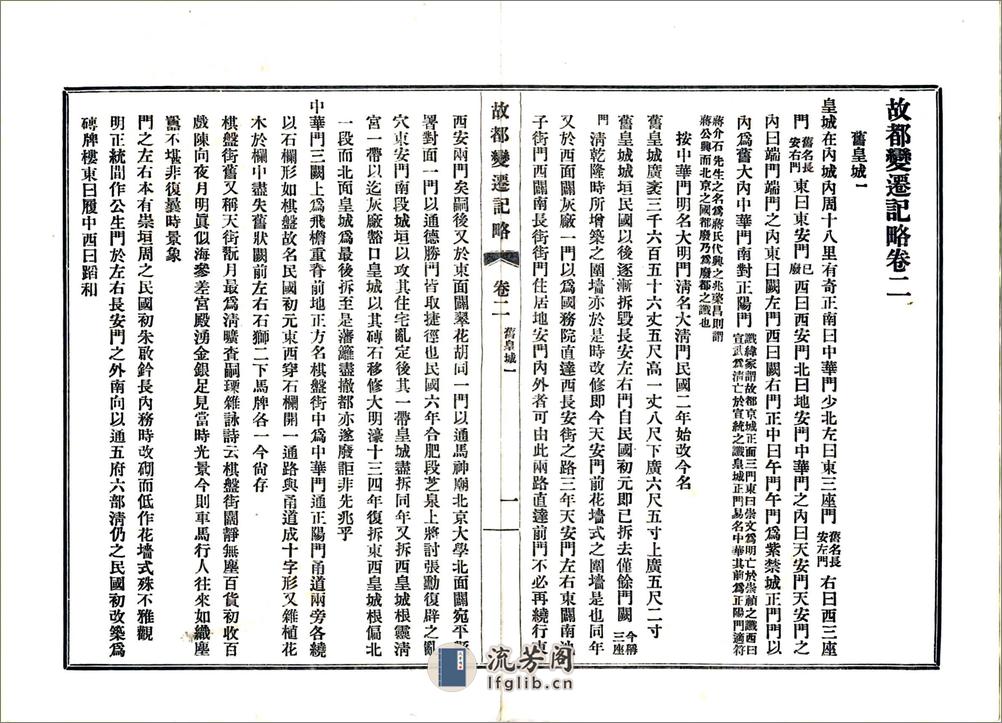 故都變遷記略卷二
舊皇城一
皇城在內城內周十八里有奇正南曰中華門少北左曰東三座門舊名長安左門右曰西三座
門舊名長安右門東曰東安門已廢西曰西安門北曰地安門中華門之內曰天安門天安門之
內曰端門端門之內東曰闕左門西曰闕右門正中曰午門午門爲紫禁城正門門以
內爲舊大內中華門南對正陽門讖緯家謂故都京城正面三門東曰崇文爲明亡於崇禎之讖西曰宣武爲清亡於宣統之讖皇城正門易名中華其前爲正陽門適符
蔣介石先生之名爲蔣氏代興之兆梁昌則謂蔣公興而北京之國都廢乃爲廢都之讖也
按中華門明名大明門清名大清門民國二年始改今名
舊皇城廣袤三千六百五十六丈五尺高一丈八尺下廣六尺五寸上廣五尺二寸
舊皇城城垣民國以後逐漸拆毀長安左右門自民國初元即已拆去僅餘門闕今稱三座
門清乾隆時所增築之圍墻亦於是時改修即今天安門前花墻式之圍墻是也同年
又於西面闢灰廠一門以爲國務院直達西長安街之路三年天安門左右東闢南池
子街門西闢南長街街門住居地安門內外者可由此兩路直達前門不必再繞行東
故都變遷記略
卷二
舊皇城一
一
西安兩門矣嗣後又於東面闢翠花胡同一門以通馬神廟北京大學北面闢宛平縣
署對面一門以通德勝門皆取捷徑也民國六年合肥段芝泉上將討張勳復辟之亂
穴東安門南段城垣以攻其住宅亂定後其一帶皇城盡拆同年又拆西皇城根靈清
宮一帶以迄灰廠豁口皇城以其磚石移修大明濠十三四年復拆東西皇城根偏北
一段而北面皇城爲最後拆至是藩籬盡撤都亦遂廢詎非先兆乎
中華門三闕上爲飛檐重脊前地正方名棋盤街中爲中華門通正陽門甬道兩旁各繞
以石欄形如棋盤故名民國初元東西穿石欄開一通路與甬道成十字形又雜植花
木於欄中盡失舊狀闕前左右石獅二下馬牌各一今尚存
棋盤街舊又稱天街翫月最爲清曠查嗣瑮雜詠詩云棋盤街闊靜無塵百貨初收百
戲陳向夜月明眞似海參差宮殿湧金銀足見當時光景今則車馬行人往來如織塵
囂不堪非復曩時景象
門之左右本有崇垣周之民國初朱啟鈐長內務時改砌而低作花墻式殊不雅觀
明正統間作公生門於左右長安門之外南向以通五府六部清仍之民國初改築爲
磚牌樓東曰履中西曰蹈和
流芳阁
lfglib.cn